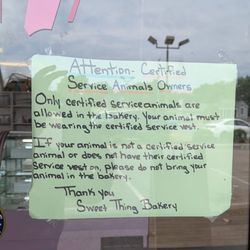 Attention- Certified
Service Animals Owners
Only certified service animals are
allowed in the bakery. Your animal must
be wearing the certified service vest.
If your animal is not a certified service
animal or does not have their certified
service vest on, please do not bring your
animal in the bakery.
Thank you
Sweet Thing Bakery